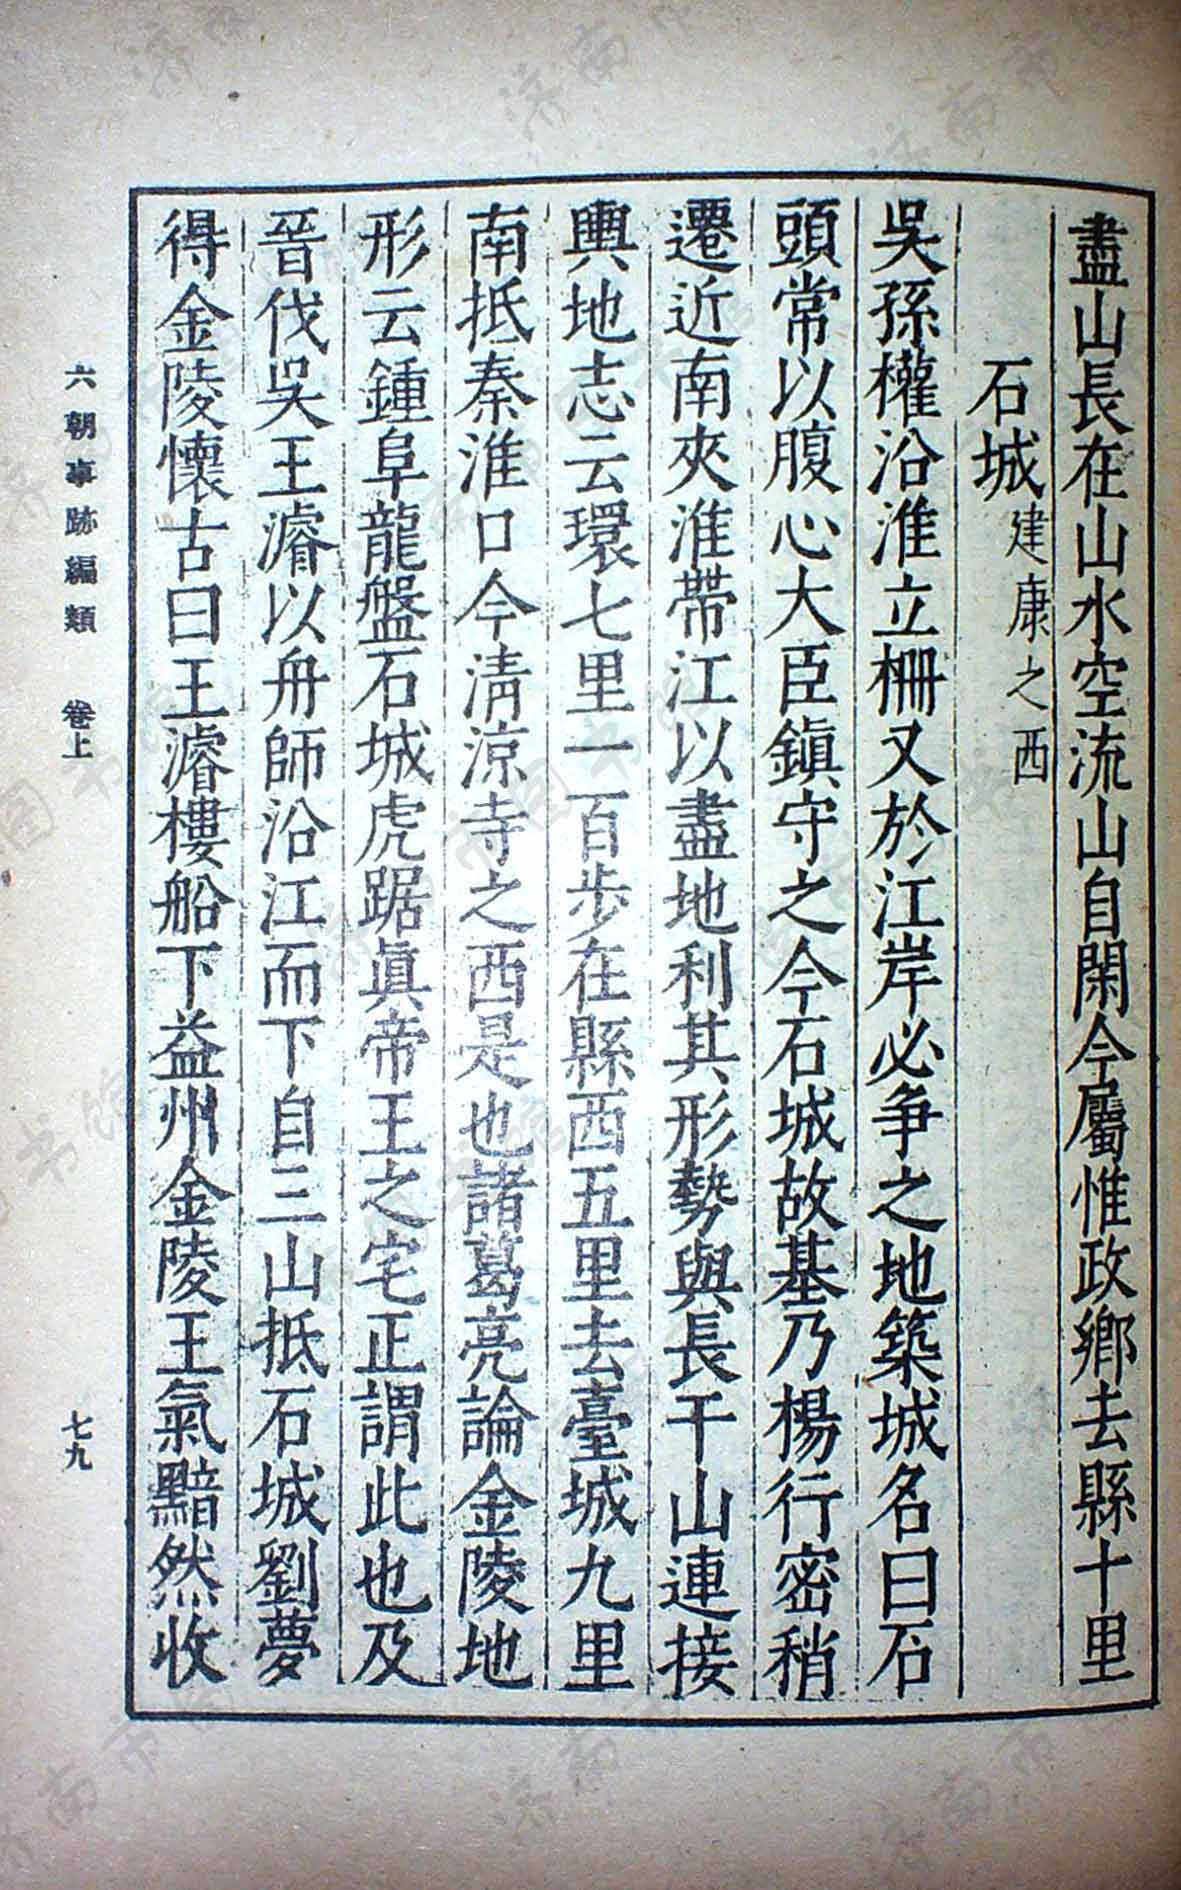 盡山長在山水空流山自閑今屬惟政鄉去縣十里
石城建康之西
吳孫權沿淮立柵又於江岸必爭之地築城名曰石
頭常以腹心大臣鎮守之今石城故基乃楊行密稍
遷近南夾淮帶江以盡地利其形勢與長干山連接
輿地志云環七里一百步在縣西五里去臺城九里
南抵秦淮口今清涼寺之西是也諸葛亮論金陵地
形云鍾阜龍盤石城虎踞眞帝王之宅正謂此也及
晉伐吳王濬以舟師沿江而下自三山抵石城劉夢
得金陵懷古曰王濬樓船下益州金陵王氣黯然收
六朝事跡編類 卷上
七九